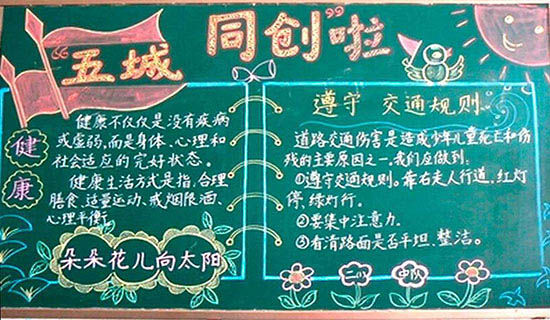 “五城同创”啦
健康
健康不仅仅是没有疾病
或虚弱,而是身体、心理和
社会适应的完好状态。
健康生活方式是指,合理
膳食、适量运动、戒烟限酒、
心理平衡。
朵朵花儿向太阳
遵守 交通规则。
道路交通伤害是造成少年儿童死亡和伤
残的主要原因之一,我们应做到:
①遵守交通规则。靠右走人行道,红灯
停,绿灯行。
②要集中注意力。
③看清路面是否平坦、整洁。
二(1)
中队